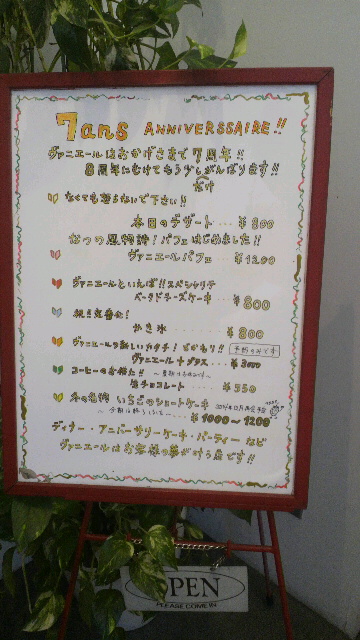 7ans ANNIVERSSAIRE!!
ヴァニエールはおかげさまで7周年!!
8周年にむけてもう少しがんばります!!
だけ
なくても怒らないで下さい!!
本日のデザート・・・¥800
なつの風物詩!パフェはじめました!!
ヴァニエールパフェ・・・¥1200
ヴァニエールといえば!!スペシャリテ
ベークドチーズケーキ・・・¥800
かき氷・・・¥800
ヴァニエールの新しいカタチ!
予約のみです
ヴァニエール+プラス・・・¥3000
コーヒーのお供に!!
生チョコレート・・・¥550
冬の名物 いちごのショートケーキ
¥1000〜1200
ディナー・アニバーサリーケーキ・パーティーなど
ヴァニエールはお客様の夢が叶う店です!!
OPEN
PLEASE COME IN